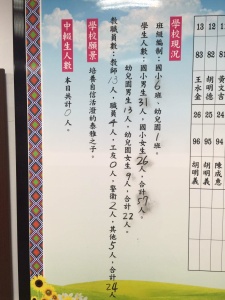 13 12 11
83 82 81
王永金 胡明德 黃文吉
26 25 24
96 95 94
胡明義 胡明義 陳成意
學校現況
班級編制：國小6班、幼兒園1班。
學生人數：國小男生31人，國小女生26人，合計57人。
幼兒園男生13人，幼兒園女生9人，合計22人。
教職員數：教師13人，職員4人，工友0人，警衛2人，其他5人，合計24人
學校願景 培養自信活潑的泰雅之子。
中輟生人數 本月共計0人。